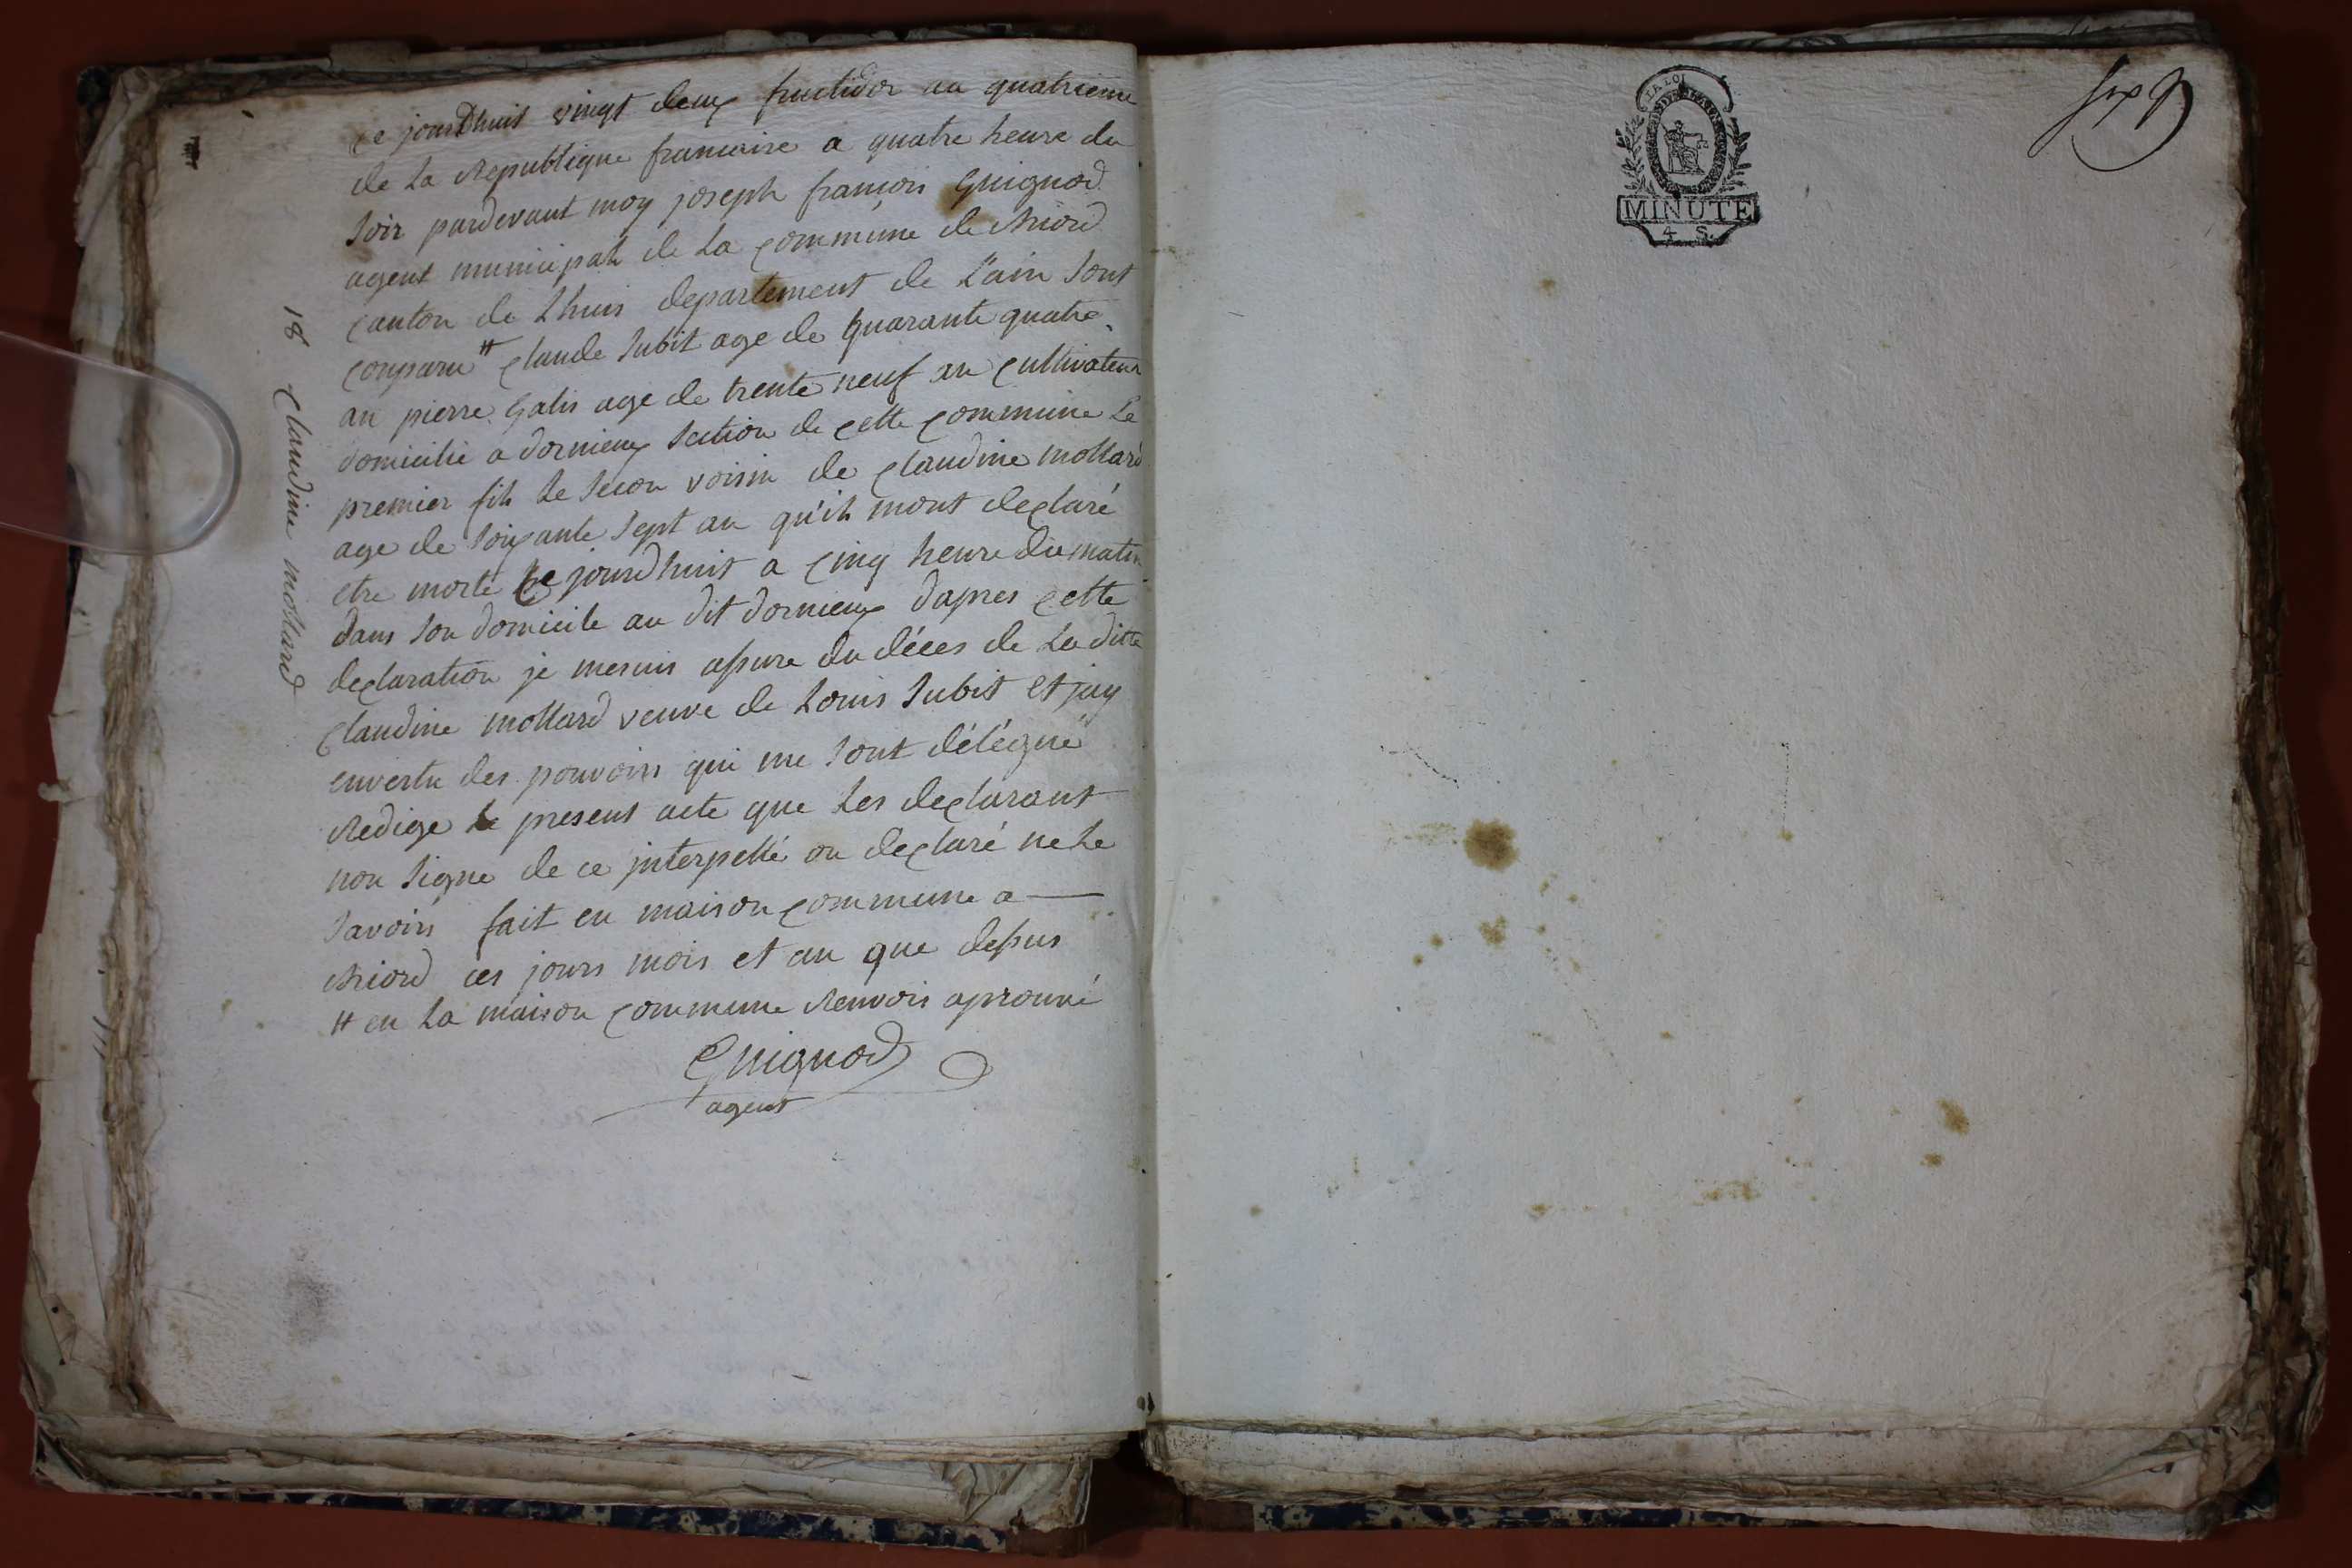 ce jourdhuit vingt deux fructidor an quatrieme
de la Republique francaise a quatre heure du
soir pardevant moy joseph françois Guignod
agent municipal de la commune de Briord
canton de Lhuis departement de L'ain sont
comparu # claude Subit age de quarante quatre
an pierre Galis age de trente neuf an cultivateur
domicilié a dornieux section de cette commune Le
premier fils le secon voisin de claudine mollard
age de soixante sept an qu'ils mont declaré
etre morte ce jourdhuit a cinq heure du matin
dans son domicile au dit dornieux dapres cette
declaration je mesuis assure du décés de La ditte
claudine mollard veuve de Louis Subit et jay
envertu des pouvoirs qui me sont délégué
Redige le present acte que les declarant
non signe de ce interpellé on declaré nele
savoirs fait en maison commune a
Briord ces jours mois et an que dessus
# en la maison commune Renvois aprouvé
Guignod
agent
18 claudine mollard
LA LOI
MINUTE
4 S.